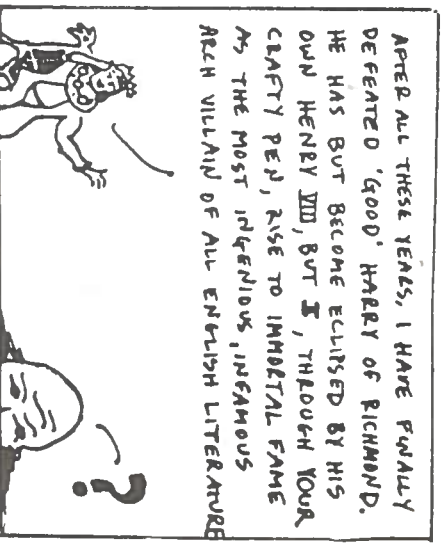 AFTER ALL THESE YEARS, I HAVE FINALLY
DEFEATED 'GOOD' HARRY OF RICHMOND.
HE HAS BUT BECOME ECLIPSED BY HIS
OWN HENRY VIII, BUT I, THROUGH YOUR
CRAFTY PEN, RISE TO IMMORTAL FAME
AS THE MOST INGENIOUS, INFAMOUS
ARCH VILLAIN OF ALL ENGLISH LITERATURE
?